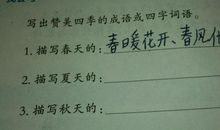 写出赞美四季的成语或四字词语。
1. 描写春天的:春暖花开、春风
2. 描写夏天的:
3. 描写秋天的: